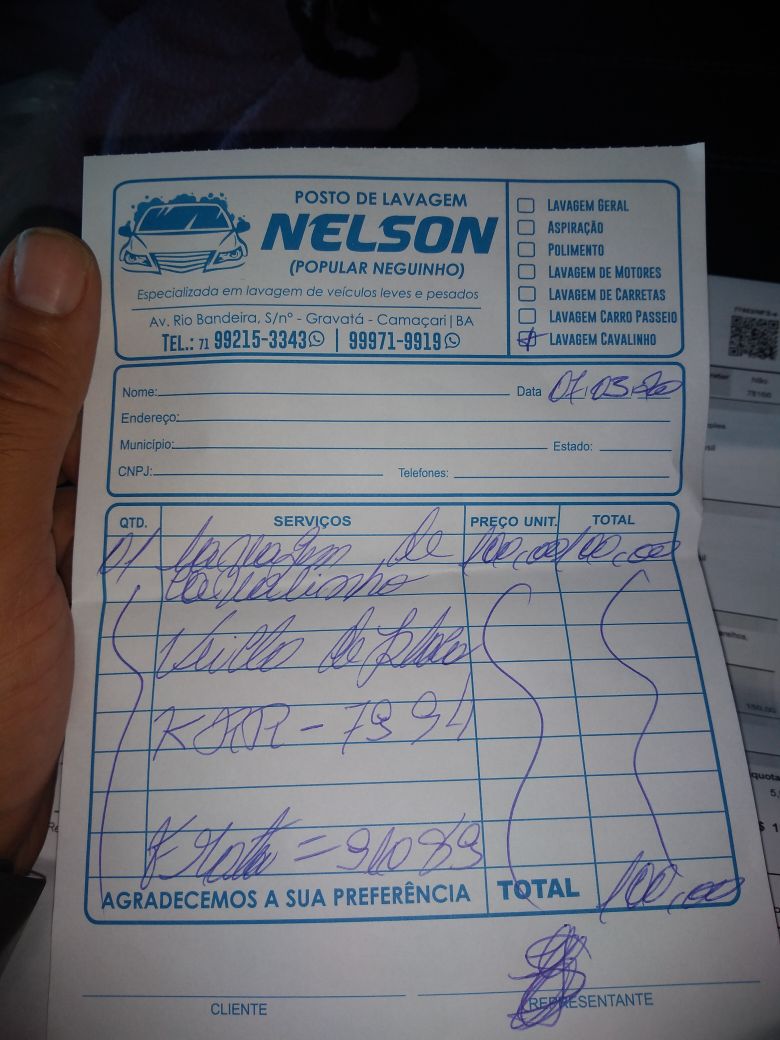 POSTO DE LAVAGEM
NELSON
(POPULAR NEGUINHO)
Especializada em lavagem de veículos leves e pesados
Av. Rio Bandeira, S/nº - Gravatá - Camaçari|BA
TEL.: 71 99215-3343 | 99971-9919
LAVAGEM GERAL
ASPIRAÇÃO
POLIMENTO
LAVAGEM DE MOTORES
LAVAGEM DE CARRETAS
LAVAGEM CARRO PASSEIO
LAVAGEM CAVALINHO
Nome: Data 07/03/20
Endereço:
Município: Estado:
CNPJ: Telefones:
QTD. SERVIÇOS PREÇO UNIT. TOTAL
01 Lavagem de 100,00 100,00
cavalinho
de
7994
Frota =
AGRADECEMOS A SUA PREFERÊNCIA TOTAL 100,00
CLIENTE REPRESENTANTE